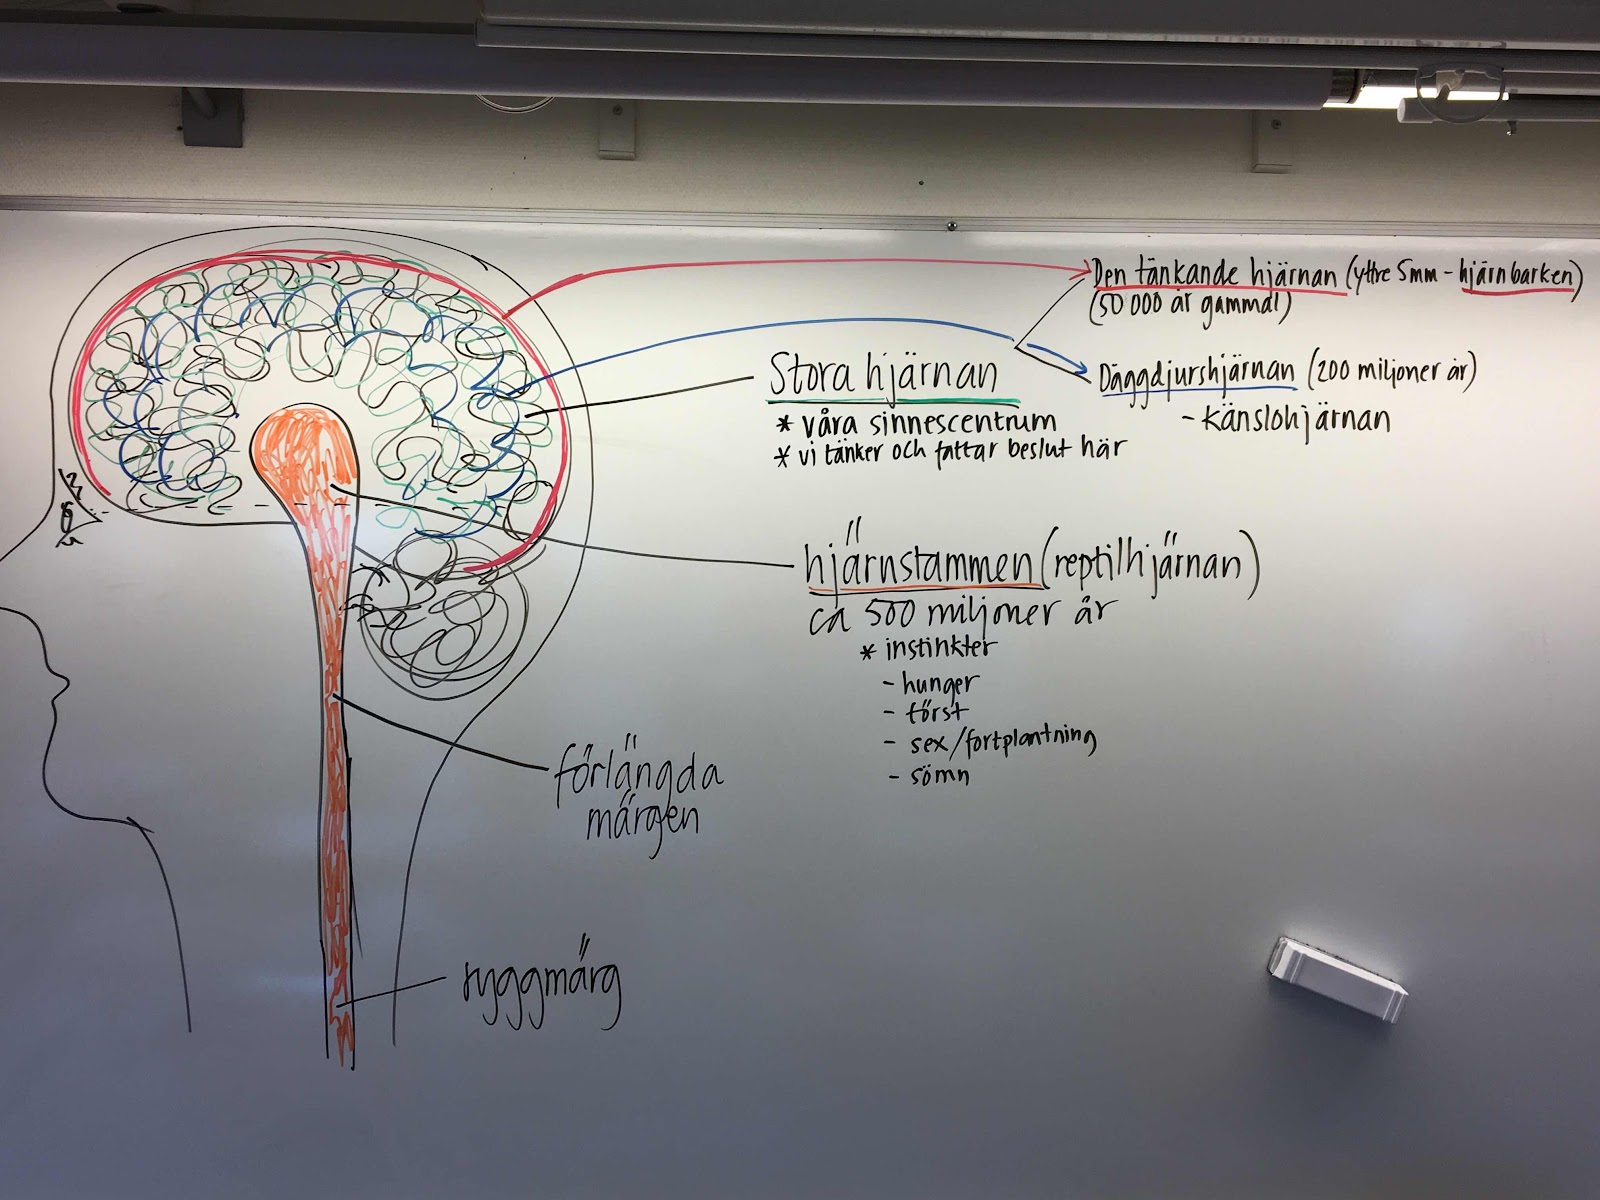 Den tänkande hjärnan (yttre 5mm - hjärnbarken)
(50 000 år gammal)
Däggdjurshjärnan (200 miljoner år)
- Känslohjärnan
Stora hjärnan
* våra sinnescentrum
* vi tänker och fattar beslut här
hjärnstammen (reptilhjärnan)
ca 500 miljoner år
* instinkter
- hunger
- törst
- sex/fortplantning
- sömn
förlängda
märgen
ryggmärg